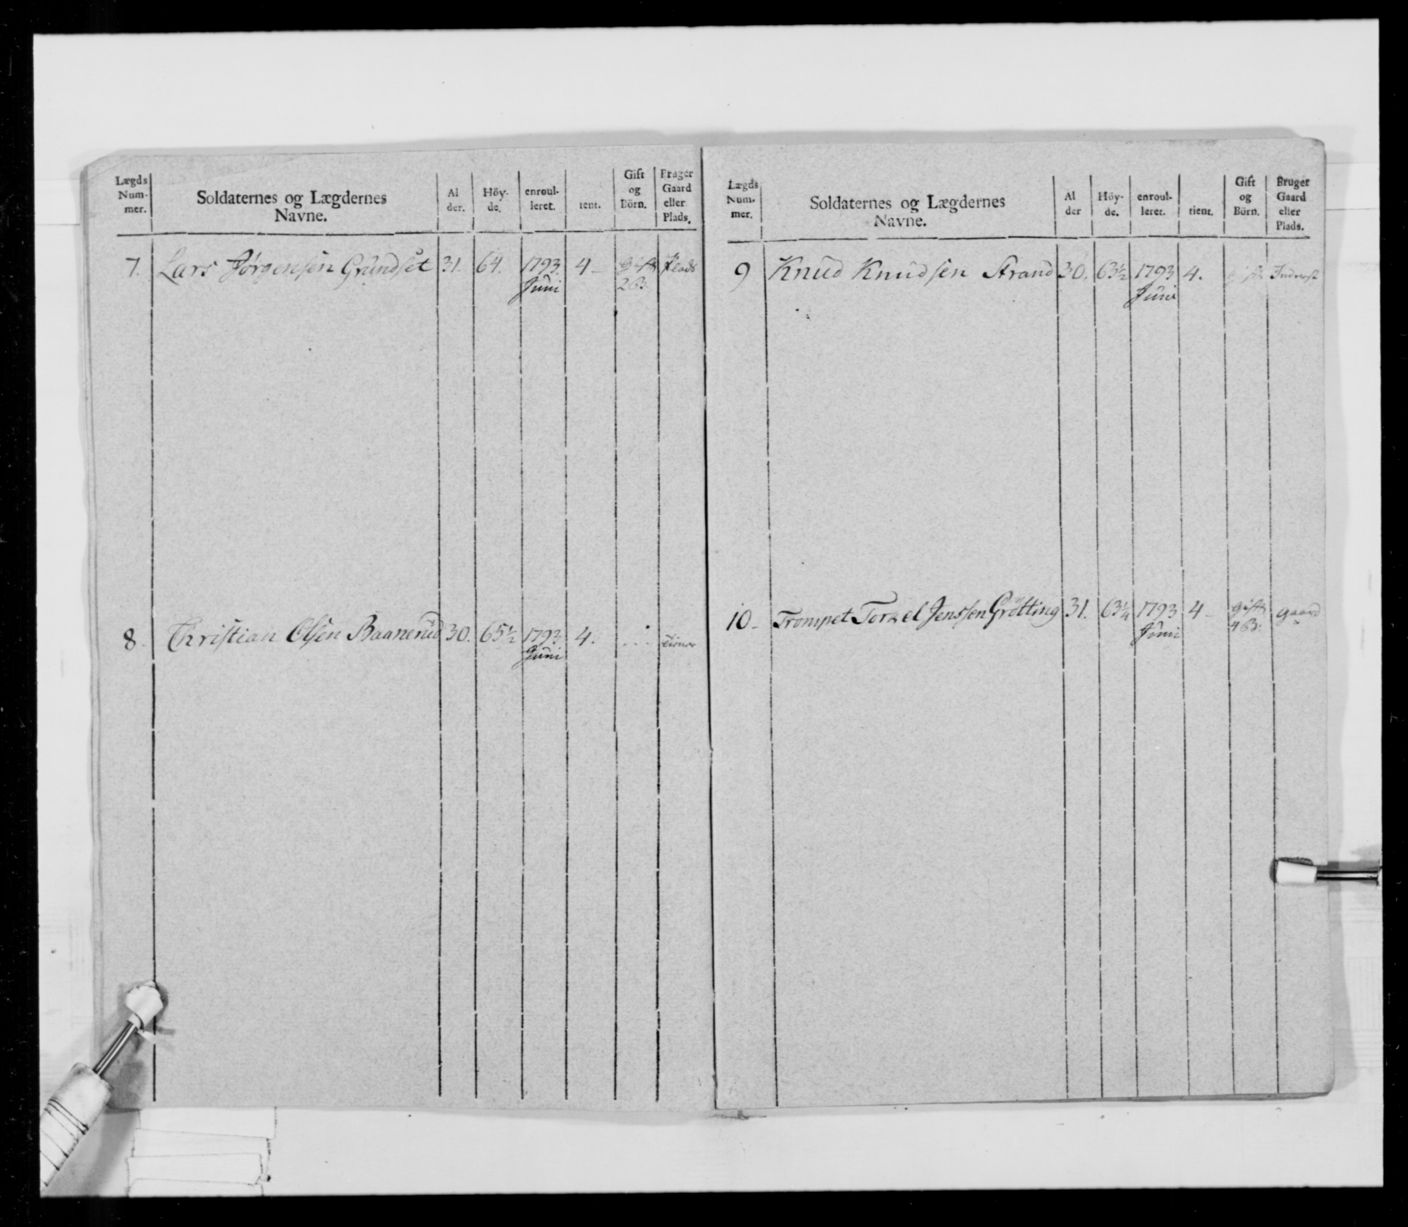 Lægds
Num-
mer.
Soldaternes og Lægdernes
Navne.
Al
der.
Höy-
de.
enroul-
leret.
tient.
Gift
og
Börn.
Bruger
Gaard
eller
Plads.
7. Lars Jørgensen Grundset 31. 64. 1793 4 - gift Plads
Juni 2 B.
8. Christian Olsen Baanerud 30. 65½ 1793 4. . . .
Juni
Lægds
Num-
mer.
Soldaternes og Lægdernes
Navne.
Al
der
Höy-
de.
enroul-
leret.
tient.
Gift
og
Börn.
Bruger
Gaard
eller
Plads.
9 Knud Knudsen Strand 30. 63½ 1793 4. gift Inderst
Juni
10 - Trompet Jenssen Grötting 31. 63¼ 1793 4 - gift gaard
Juni 4 B.